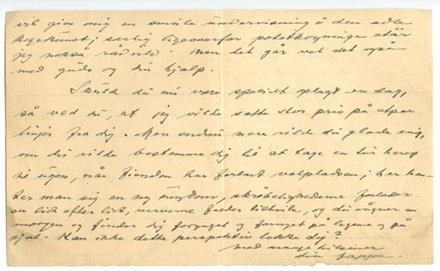 vil give mig en smule undervisning i den ædle
kogekunst; særlig ligeoverfor potetkogningen står
jeg nokså rådvild. Men det går vel det også
med guds og din hjælp.
Skuld du nu være specielt plaget en dag,
så ved du, at jeg vilde sætte stor pris på et par
linjer fra dig. Men endnu mere vilde du glæde mig,
om du vilde bestemme dig til at tage en tur herop
til egnen, når fienden har forladt valpladsen; her hen-
ter man sig en ny ungdom, skrøbelighederne forlader
en lidt efter lidt, nerverne finder hvile, og du vågner en
morgen og finder dig forynget og fornyet på legeme og på
sjæl. Kan ikke dette perspektiv lokke dig?
Med mange hilsener
din pappa.